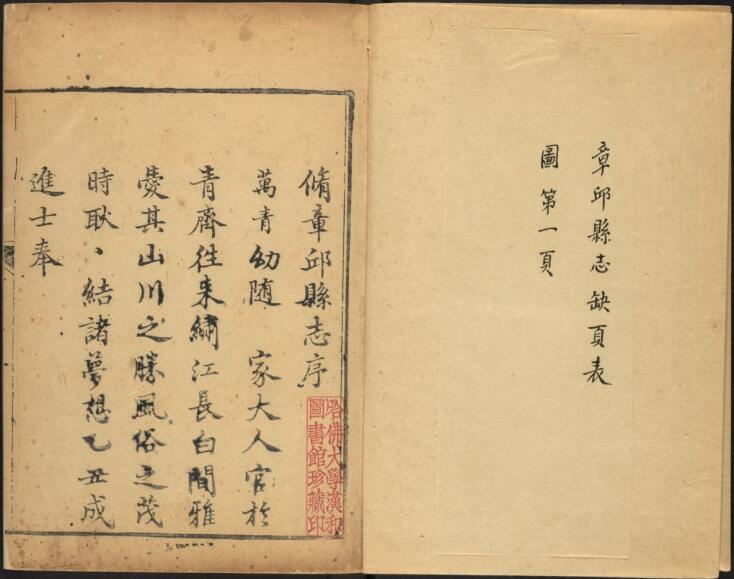 章邱縣志缺頁表
圖第一頁
脩章邱縣志序
萬青幼随 家大人官於
青齊徃来繡江長白間雅
愛其山川之勝風俗之茂
時耿〻結諸夢想乙丑成
進士奉
哈佛大學漢和
圖書館珍藏印